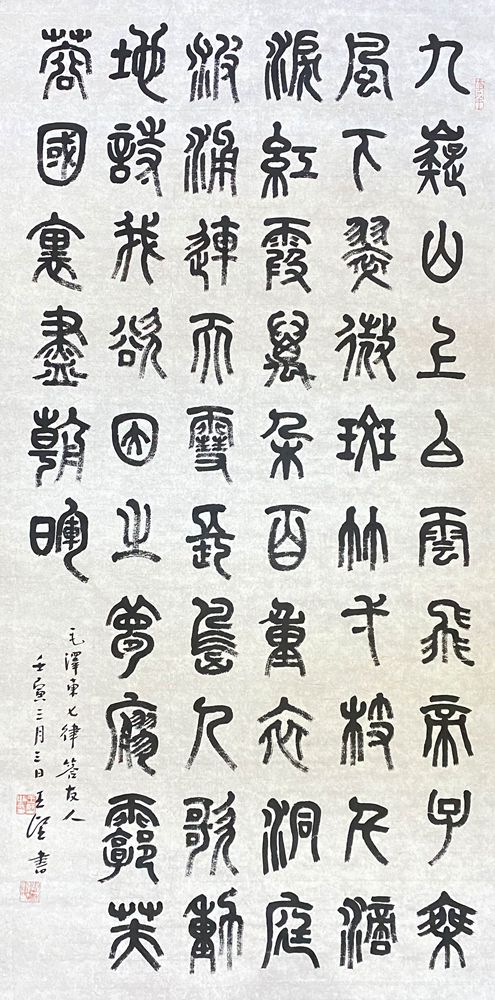 九嶷山上白雲飛帝子乘
風下翠微斑竹一枝千滴
淚紅霞萬朵百重衣洞庭
波涌連天雪長島人歌動
地詩我欲因之夢廫霩芙
蓉國裏盡朝暉
毛澤東七律答友人
壬寅三月三日王書